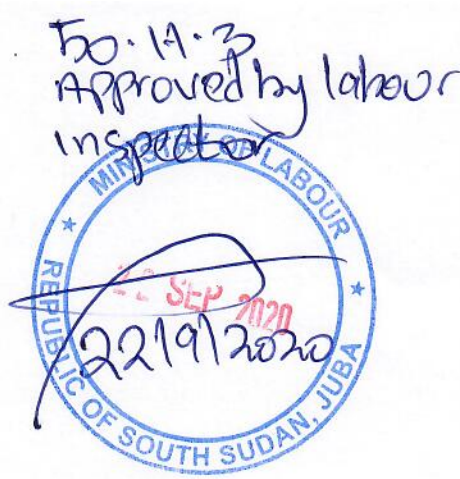 50.H.3
Approved by labour
inspector
MINISTRY OF LABOUR
22 SEP 2020
22/9/2020
REPUBLIC OF SOUTH SUDAN, JUBA